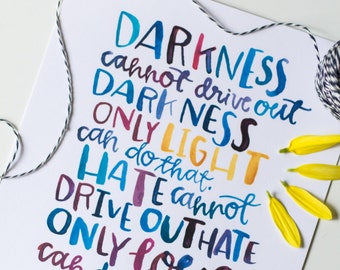 DARKNESS
cannot drive out
DARKNESS
ONLY LIGHT
can do that.
HATE cannot
DRIVE OUT HATE
ONLY
can